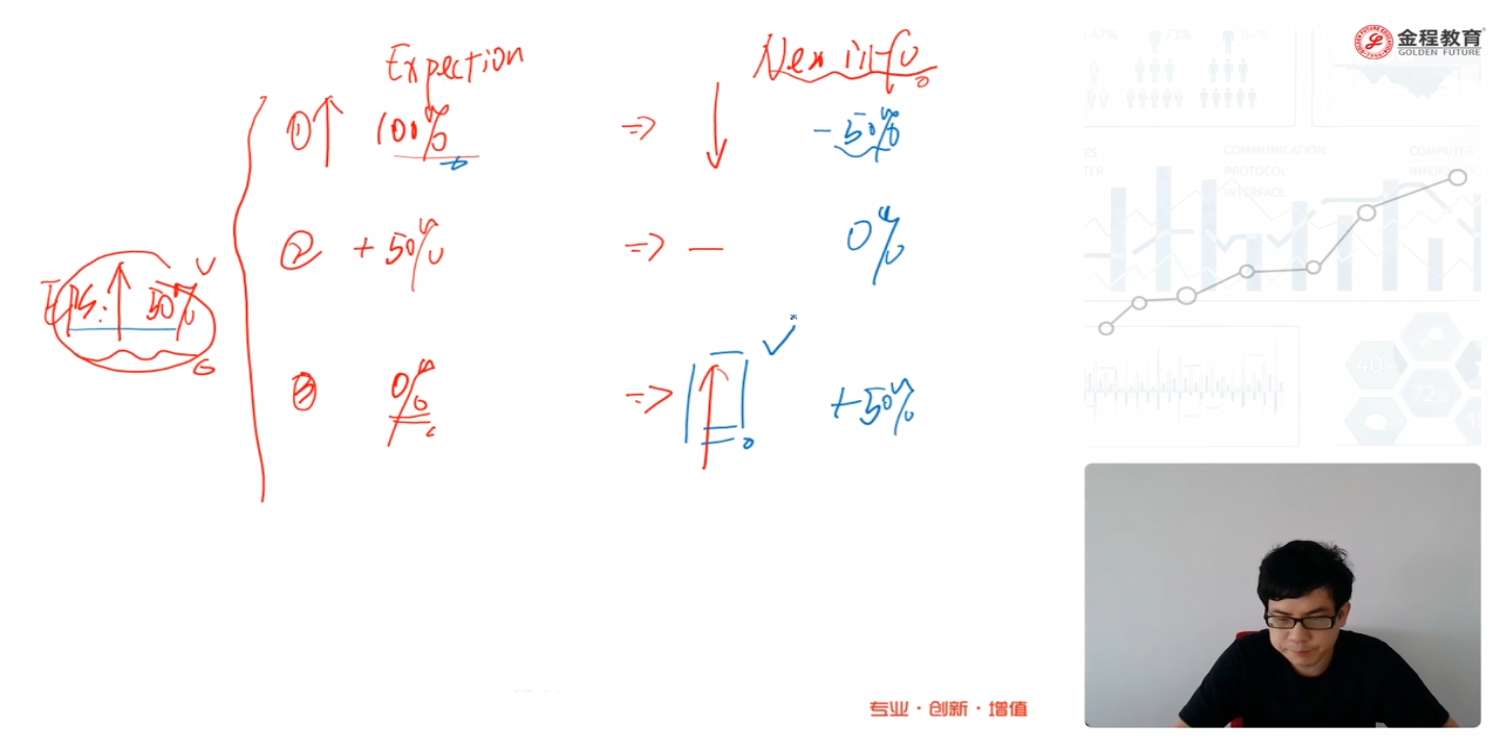 金程教育
GOLDEN FUTURE
Expection
New info
① ↑ 100% ⇒ ↓ -50%
② +50% ⇒ — 0%
EPS: ↑ 50%
③ 0% ⇒ ↑ +50%
COMMUNICATION
PROTOCOL
INTERFACE
专业·创新·增值